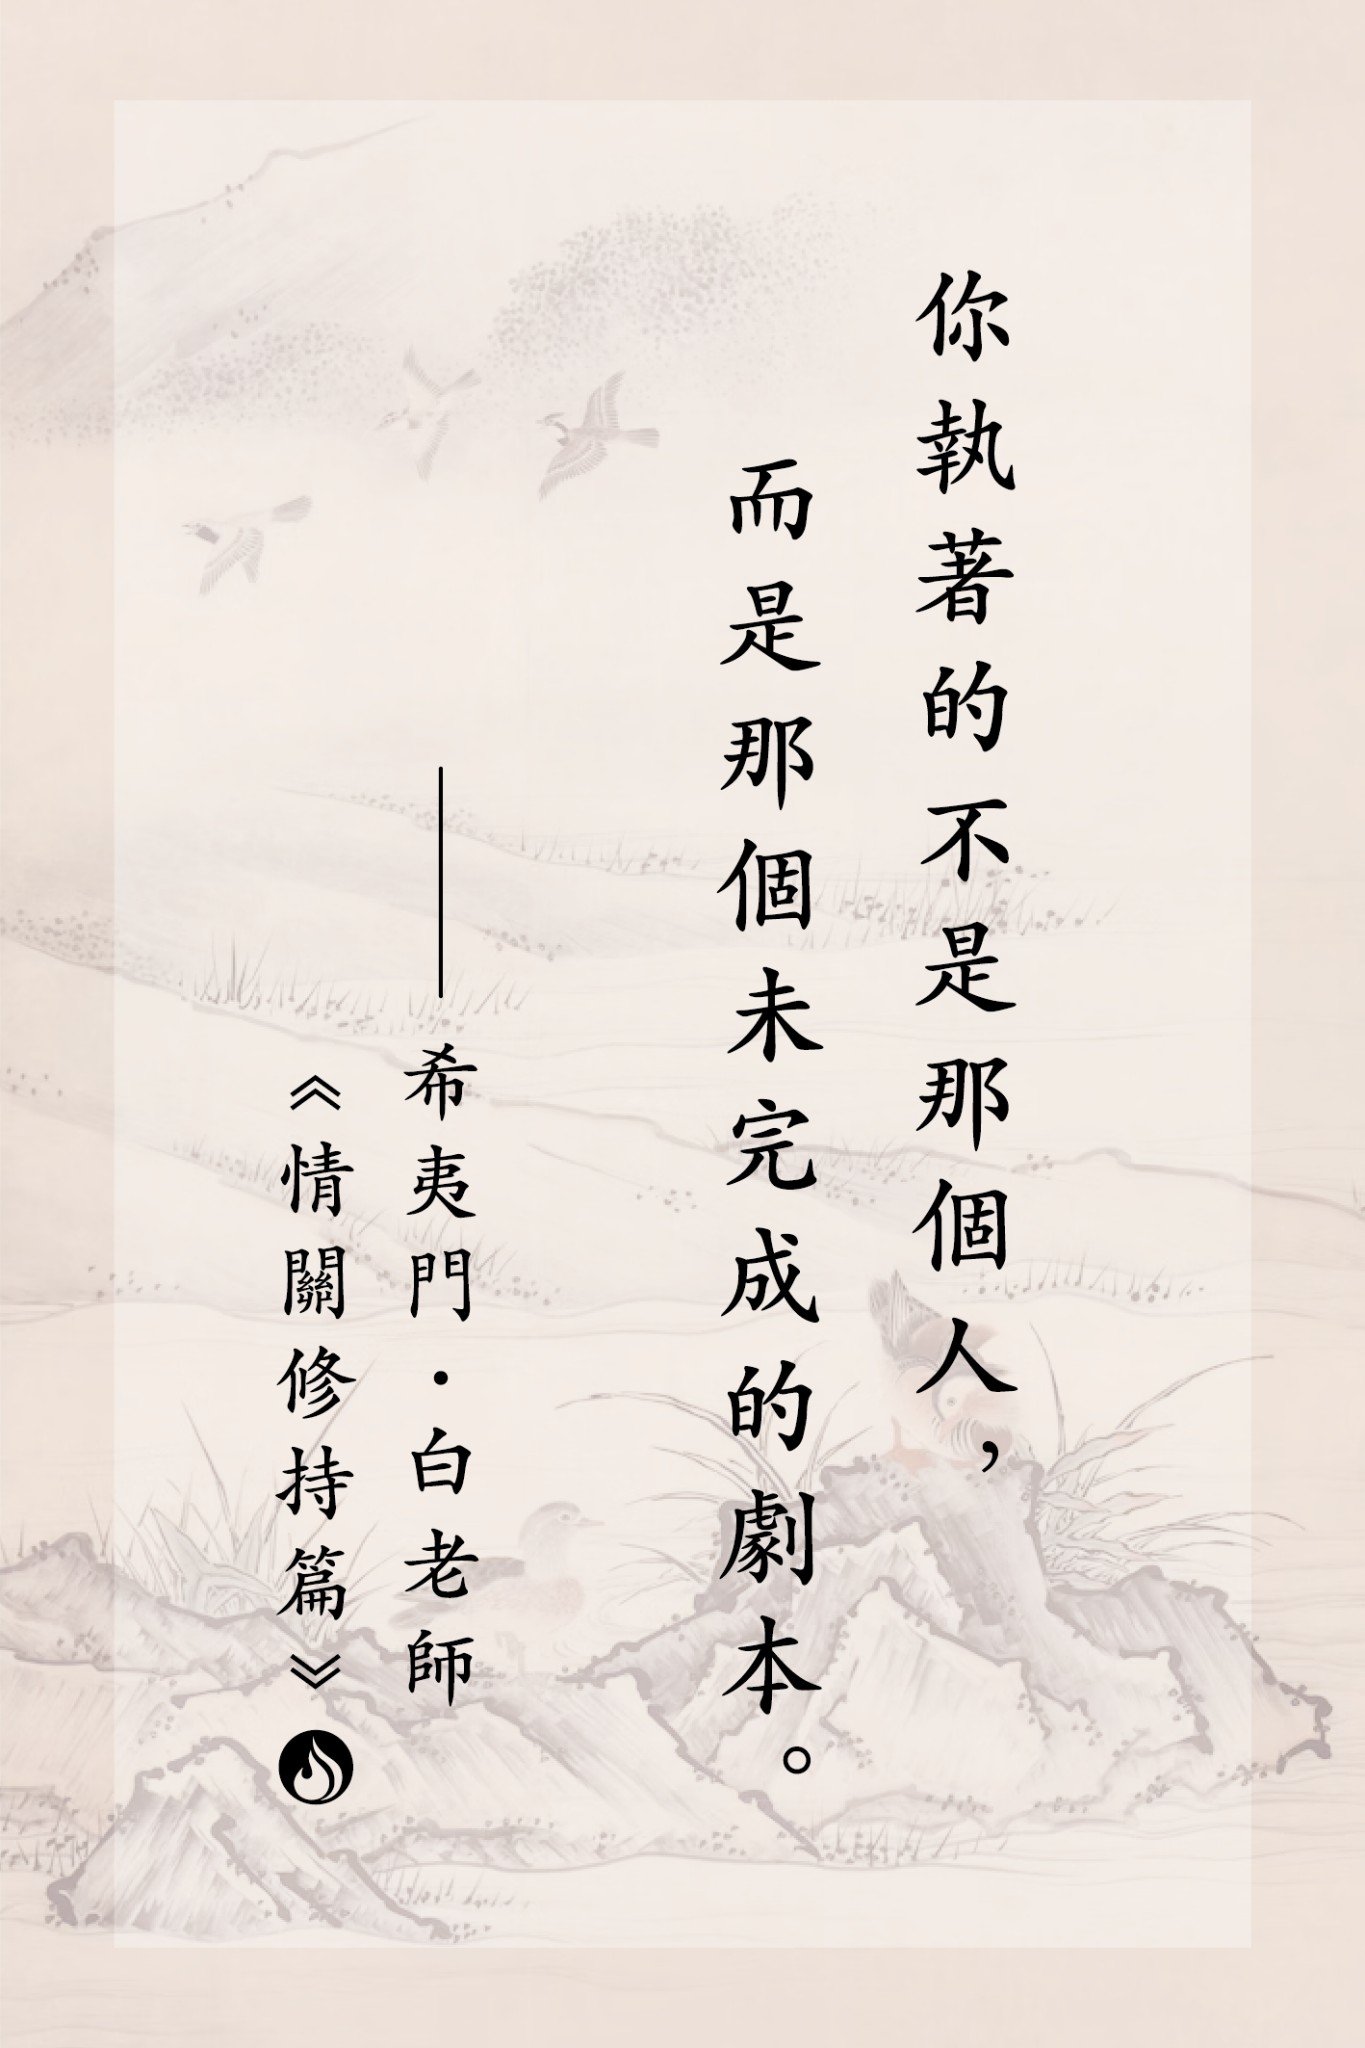 你執著的不是那個人，
而是那個未完成的劇本。
——希夷門·白老師
《情關修持篇》